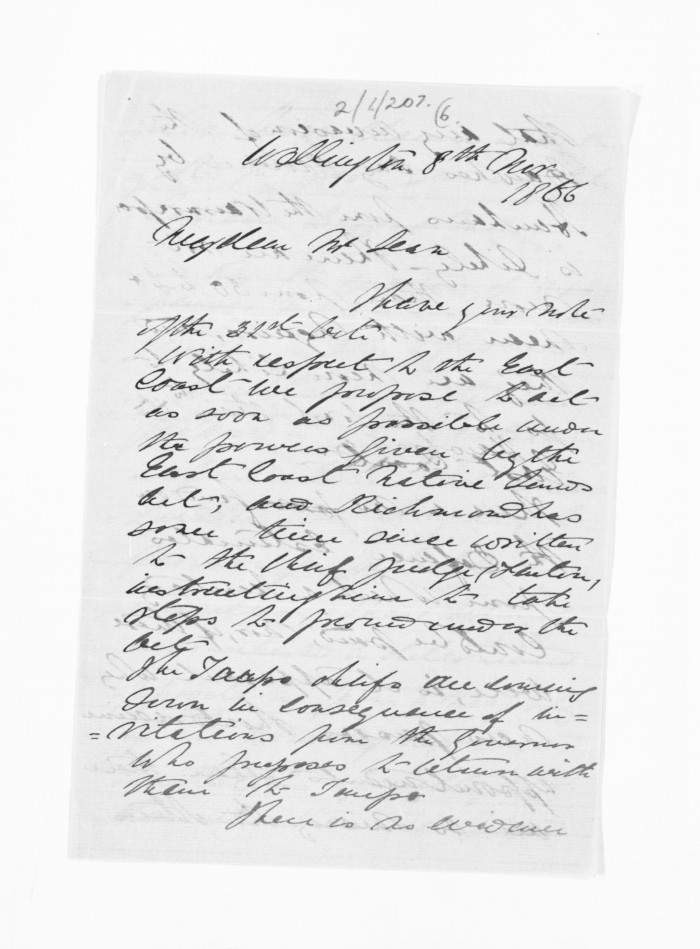 2/1/207. (6
Wellington 8th Nov
1866
My dear McLean
I have your note
of the 31st Oct.
With respect to the East
Coast we propose to act
as soon as possible under
the powers given by the
East Coast Native Lands
Act, and Richmond has
some time since written
to the Chief Judge, Fenton,
instructing him to take
steps to proceed under the
Act
The Taupo chiefs are coming
down in consequence of in=
=vitations from the Governor
who proposes to return with
them to Taupo
There is no evidence